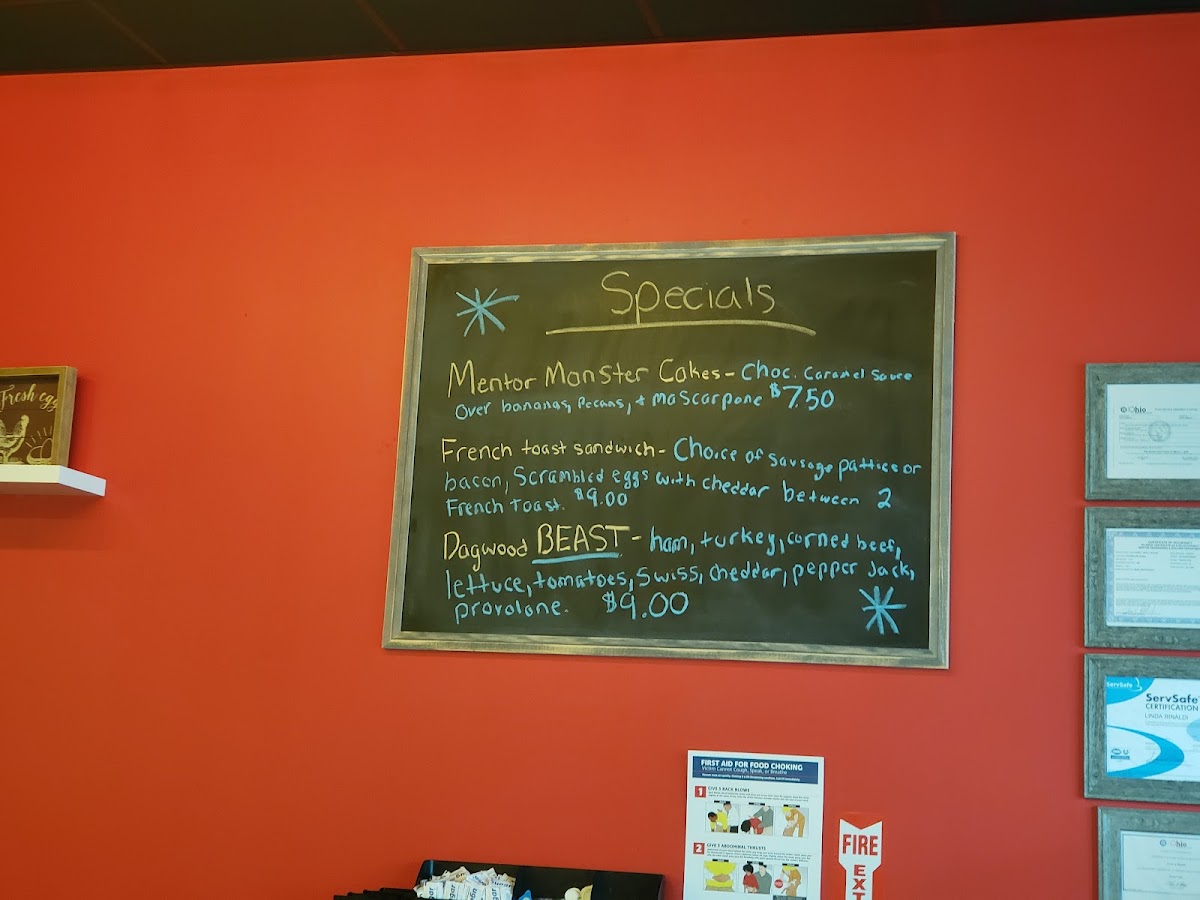 Specials
Mentor Monster Cakes - Choc. Caramel Sauce
over bananas, Pecans, + Mascarpone $7.50
French toast sandwich - Choice of sausage patties or
bacon, Scrambled eggs with cheddar between 2
French Toast. $9.00
Dagwood BEAST - ham, turkey, corned beef,
lettuce, tomatoes, Swiss, cheddar, pepper Jack,
provolone. $9.00
Fresh egg
Ohio
ServSafe
ServSafe
CERTIFICATION
LINDA RINALDI
Ohio
FIRST AID FOR FOOD CHOKING
Victim Cannot Cough, Speak, or Breathe
1 GIVE 5 BACK BLOWS
2 GIVE 5 ABDOMINAL THRUSTS
FIRE
EXT